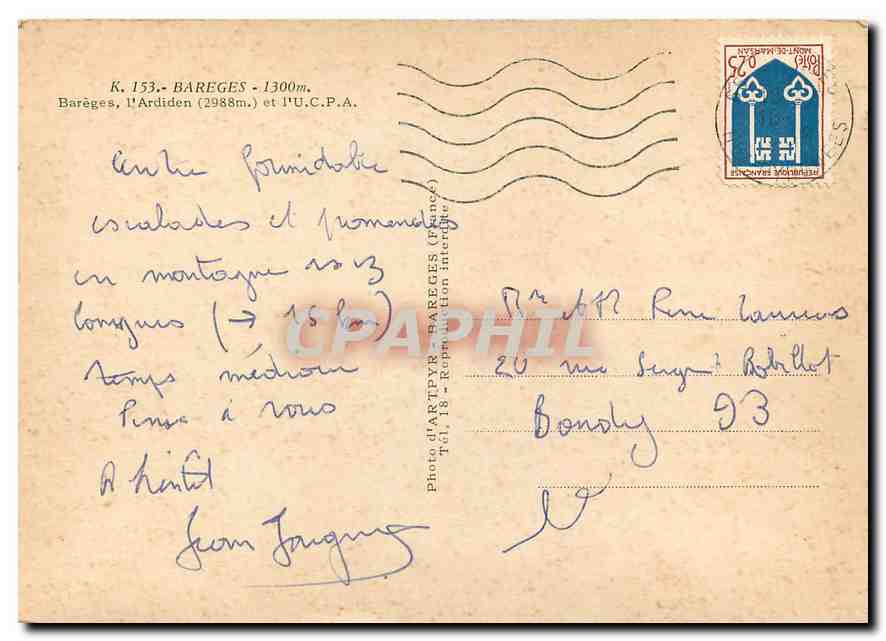 K. 153.- BAREGES - 1300m.
Barèges, l'Ardiden (2988m.) et l'U.C.P.A.
Centre formidable
escalades et promenades
en montagne
longues (→ 15 km)
temps médiocre
Pense à vous
A bientôt
Jean
Photo d'ARTPYR - BAREGES (France)
Tél. 18 - Reproduction interdite
0,25 Postes
MONT-DE-MARSAN
REPUBLIQUE FRANÇAISE
CPAPHIL
20 rue Sergent Bobillot
Bondy 93